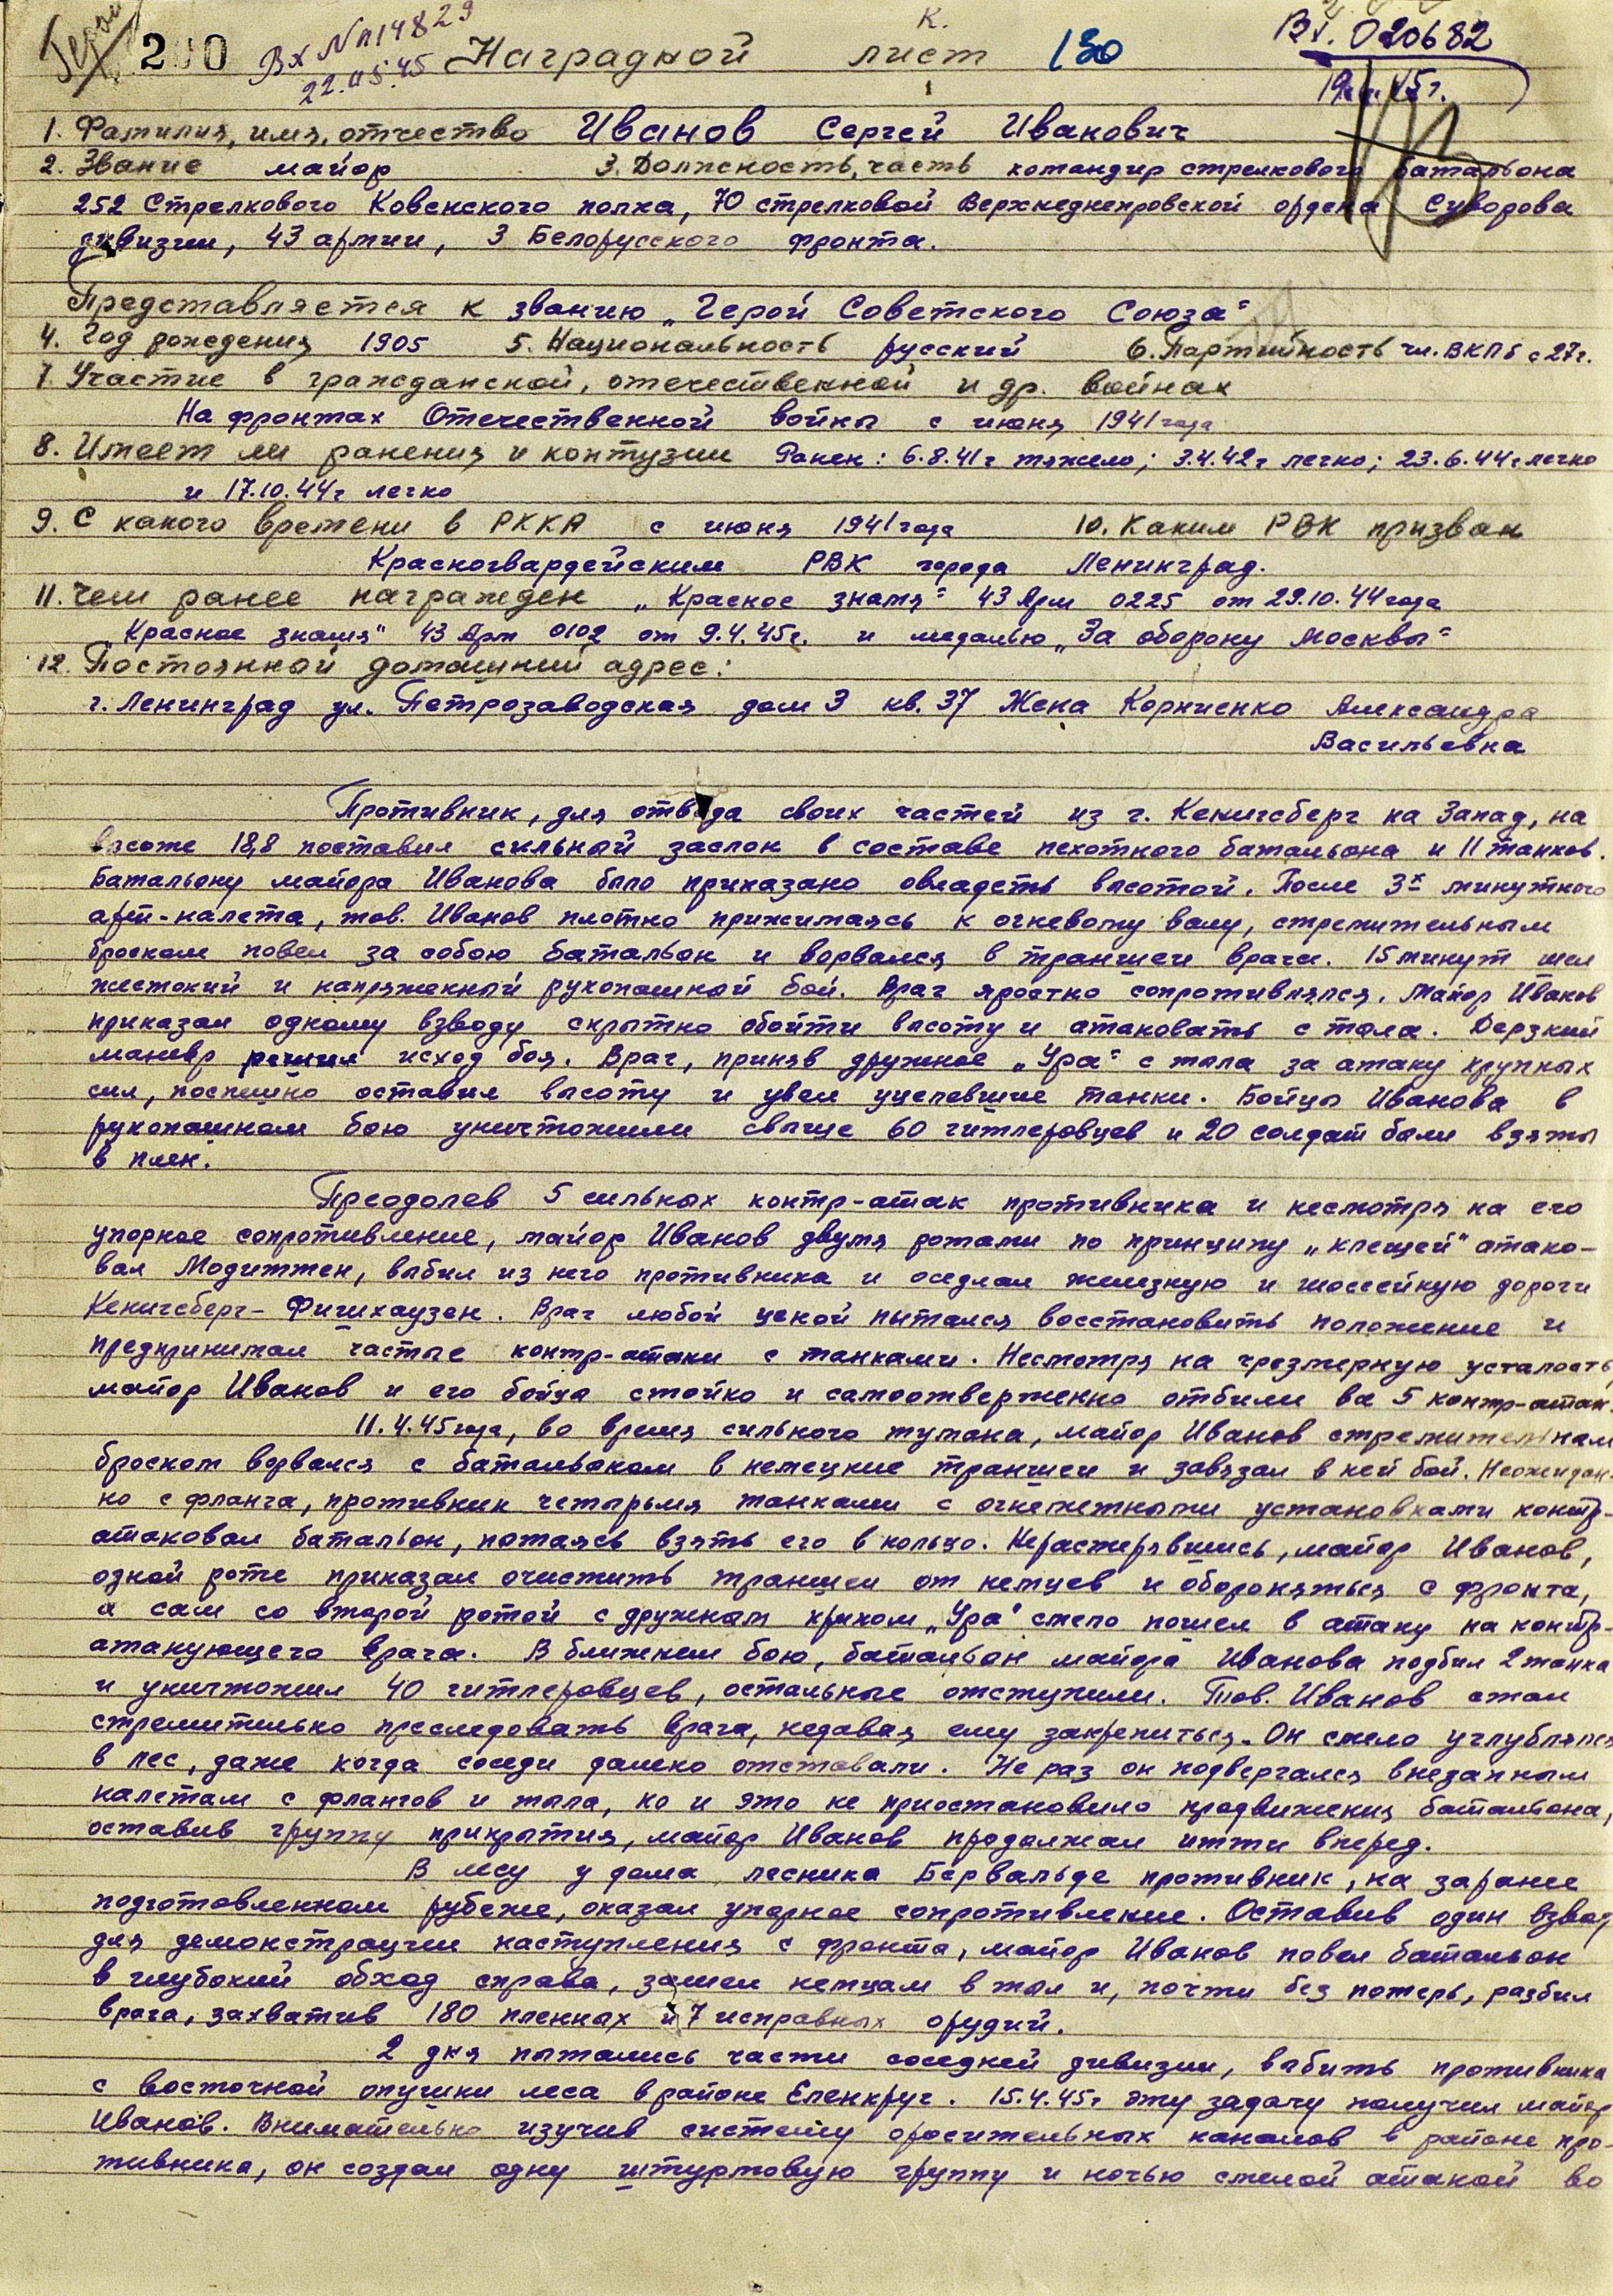 Герой
200
Вх №п14829
22.05.45
К.
Наградной лист 130
Вх. 020682
1. Фамилия, имя, отчество Иванов Сергей Иванович
2. Звание майор 3. Должность, часть командир стрелкового батальона
252 Стрелкового Ковенского полка, 70 стрелковой Верхнеднепровской ордена Суворова
дивизии, 43 армии, 3 Белорусского фронта.
Представляется к званию „Герой Советского Союза"
4. Год рождения 1905 5. Национальность русский 6. Партийность чл. ВКПб с 27г.
7 Участие в гражданской, отечественной и др. войнах
На фронтах Отечественной войны с июня 1941 года
8. Имеет ли ранения и контузии Ранен: 6.8.41г тяжело; 3.4.42г легко; 23.6.44г легко
и 17.10.44г легко
9. С какого времени в РККА с июня 1941 года 10. Каким РВК призван
Красногвардейским РВК города Ленинград.
11. Чем ранее награжден „Красное знамя" 43 Арм 0225 от 29.10.44 года
„Красное знамя" 43 Арм 0102 от 9.4.45г. и медалью „За оборону Москвы"
12. Постоянной домашний адрес:
г. Ленинград ул. Петрозаводская дом 3 кв. 37 Жена Корниенко Александра
Васильевна
Противник, для отвода своих частей из г. Кенигсберг на Запад, на
высоте 18,8 поставил сильный заслон в составе пехотного батальона и 11 танков.
Батальону майора Иванова было приказано овладеть высотой. После 3х минутного
арт-налета, тов. Иванов плотно прижимаясь к огневому валу, стремительным
броском повел за собою батальон и ворвался в траншеи врага. 15 минут шел
жестокий и напряженный рукопашной бой. Враг яростно сопротивлялся. Майор Иванов
приказал одному взводу скрытно обойти высоту и атаковать с тыла. Дерзкий
маневр решил исход боя. Враг, приняв дружное „Ура" с тыла за атаку крупных
сил, поспешно оставил высоту и увел уцелевшие танки. Бойцы Иванова в
рукопашном бою уничтожили свыше 60 гитлеровцев и 20 солдат были взяты
в плен.
Преодолев 5 сильных контр-атак противника и несмотря на его
упорное сопротивление, майор Иванов двумя ротами по принципу „клещей" атако-
вал Модиттен, выбил из него противника и оседлал железную и шоссейную дороги
Кенигсберг-Фишхаузен. Враг любой ценой пытался восстановить положение и
предпринимал частые контр-атаки с танками. Несмотря на чрезмерную усталость,
майор Иванов и его бойцы стойко и самоотверженно отбили все 5 контр-атак.
11.4.45 года, во время сильного тумана, майор Иванов стремительным
броском ворвался с батальоном в немецкие траншеи и завязал в ней бой. Неожидан-
но с фланга, противник четырьмя танками с огнеметными установками контр-
атаковал батальон, пытаясь взять его в кольцо. Нерастерявшись, майор Иванов,
одной роте приказал очистить траншеи от немцев и обороняться с фронта,
а сам со второй ротой с дружным криком „Ура" смело пошел в атаку на контр-
атакующего врага. В ближнем бою, батальон майора Иванова подбил 2 танка
и уничтожил 40 гитлеровцев, остальные отступили. Тов. Иванов стал
стремительно преследовать врага, недавая ему закрепиться. Он смело углублялся
в лес, даже когда соседи далеко отставали. Не раз он подвергался внезапным
налетам с флангов и тыла, но и это не приостановило продвижения батальона,
оставив группу прикрытия, майор Иванов продолжал итти вперед.
В лесу у дома лесника Бервальде противник, на заранее
подготовленном рубеже, оказал упорное сопротивление. Оставив один взвод
для демонстрации наступления с фронта, майор Иванов повел батальон
в глубокий обход справа, зашел немцам в тыл и, почти без потерь, разбил
врага, захватив 180 пленных и 7 исправных орудий.
2 дня пытались части соседней дивизии, выбить противника
с восточной опушки леса в районе Еленкруг. 15.4.45г эту задачу получил майор
Иванов. Внимательно изучив систему оросительных каналов в районе про-
тивника, он создал одну штурмовую группу и ночью смелой атакой во